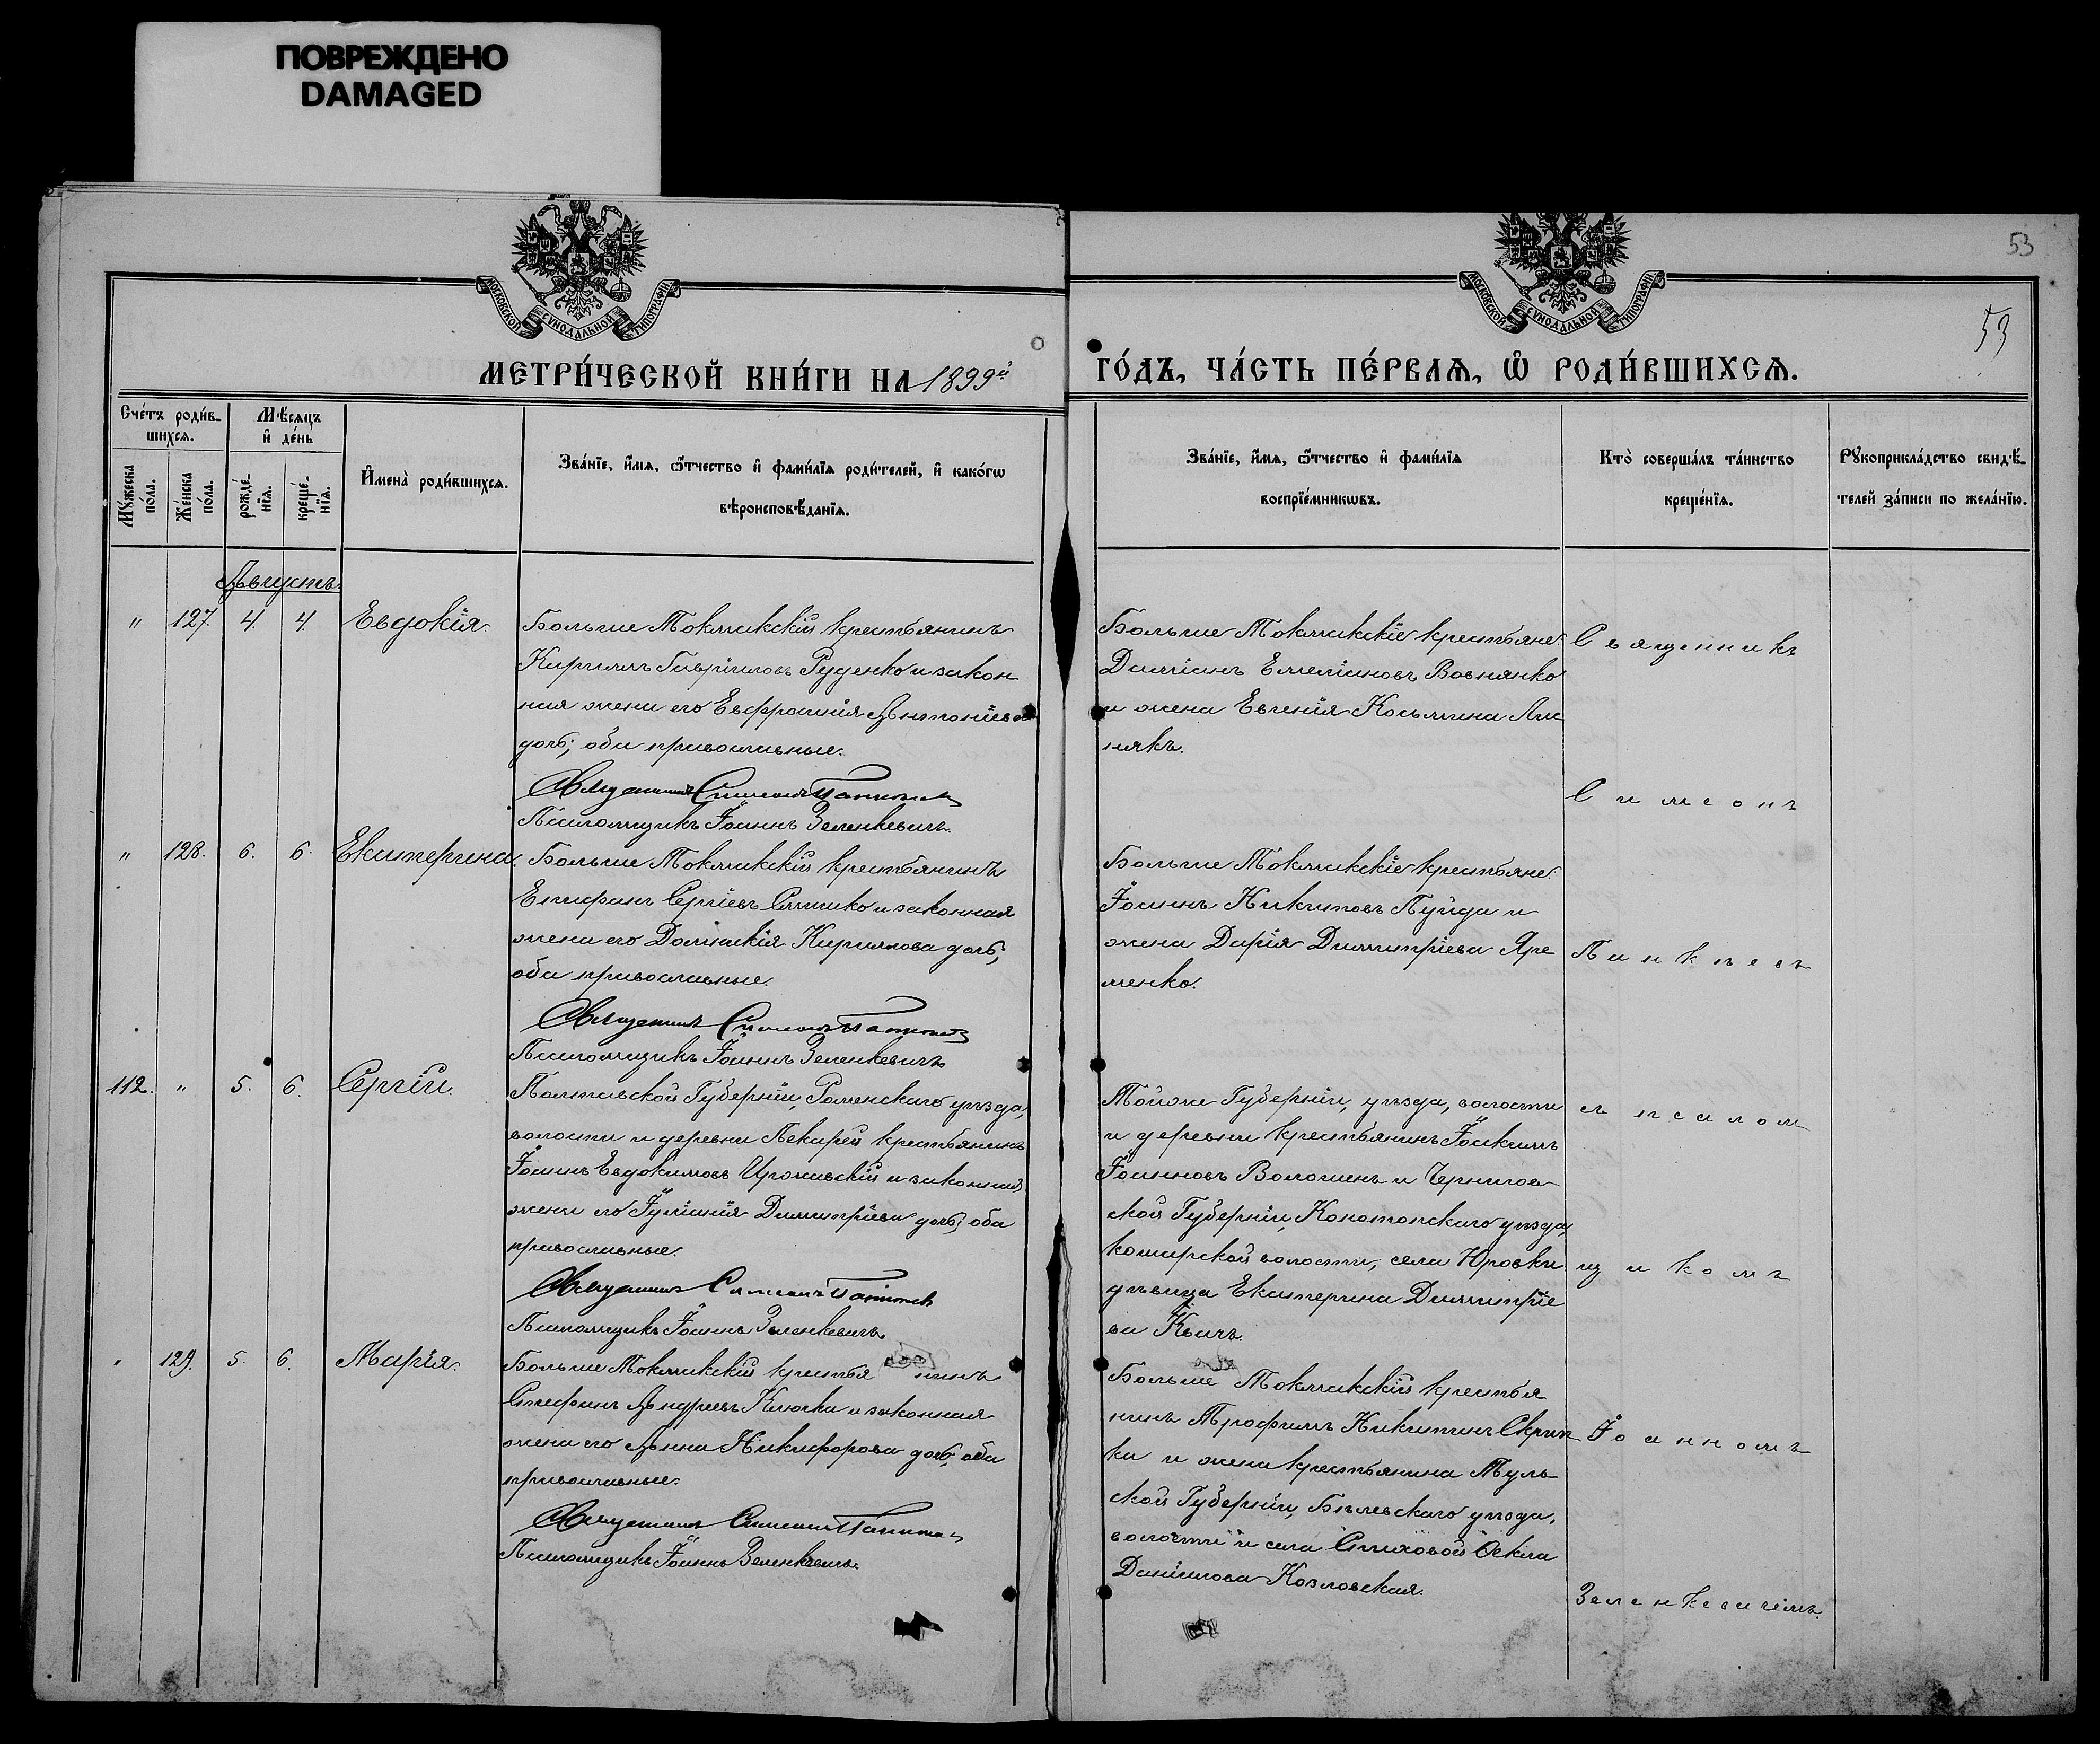 ПОВРЕЖДЕНО
DAMAGED
МОСКОВСКОЙ СѴНОДАЛЬНОЙ ТИПОГРАФІИ
МОСКОВСКОЙ СѴНОДАЛЬНОЙ ТИПОГРАФІИ
53
53
МЕТРИ́ЧЕСКОЙ КНИ́ГИ НА 1899й
ГО́ДЪ, ЧА́СТЬ ПЕ́РВАѦ, Ѽ РОДИ́ВШИХСѦ.
Сче́тъ роди́в-
шихсѧ.
Мѣ́сяцъ
и҆ де́нь
Мꙋ́жеска по́ла.
Же́нска по́ла.
рожде́-нїѧ.
креще́-нїѧ.
И҆мена̀ роди́вшихсѧ.
Зва́нїе, и҆́мѧ, ѻ҆́тчество и҆ фами́лїѧ роди́телей, и҆ како́гѡ
вѣроисповѣ́данїѧ.
Зва́нїе, и҆́мѧ, ѻ҆́тчество и҆ фами́лїѧ
воспрїе́мникѡвъ.
Кто̀ соверша́лъ та́инство
креще́нїѧ.
Рꙋкоприкла́дство свидѣ́-
телей за́писи по жела́нїю.
Августъ.
" 127. 4. 4. Евдокія.
Больше Токмакскій крестьянинъ
Кириллъ Гавріиловъ Руденко и закон
ная жена его Евфросинія Антоніева
дочь; оба православные.
Священникъ Симеонъ
Псаломщикъ Іоаннъ Зеленкевичъ.
Больше Токмакскіе крестьяне:
Даміанъ Емеліановъ Вовнянко
и жена Евгенія Косьмина Лис
някъ.
Священникъ
Симеонъ
" 128. 6. 6. Екатерина.
Больше Токмакскій крестьянинъ
Епифанъ Сергіевъ и законная
жена его Домникія Кириллова дочь;
оба православные.
Священникъ Симеонъ
Псаломщикъ Іоаннъ Зеленкевичъ
Больше Токмакскіе крестьяне:
Іоаннъ Никитовъ Пуйда и
жена Дарія Димитріева Яре
менко.
112. " 5. 6. Сергій.
Полтавской Губерніи, Роменскаго уѣзда,
волости и деревни Пекарей крестьянинъ
Іоаннъ Евдокимовъ и законная
жена его Іуліанія Димитріева дочь; оба
православные.
Священникъ Симеонъ
Псаломщикъ Іоаннъ Зеленкевичъ
Тойже Губерніи, уѣзда, волости
и деревни крестьянинъ Іоакимъ
Іоанновъ Волошинъ и Чернигов-
ской Губерніи, Конотопскаго уѣзда,
волости, села Юровки
дѣвица Екатерина Димитріе
ва
съ псалом
щикомъ
" 129. 5. 6. Марія.
Больше Токмакскій крестьянинъ
Стефанъ Андреевъ Клочко и законная
жена его Анна Никифорова дочь; оба
православные.
Священникъ Симеонъ
Псаломщикъ Іоаннъ Зеленкевичъ.
Больше Токмакскій крестья
нинъ Трофимъ Никитинъ Скрип
ка и жена крестьянина Туль
ской Губерніи, Бѣлевскаго уѣзда,
волости и села
Даніилова Козловская.
Іоанномъ
Зеленкевичемъ.